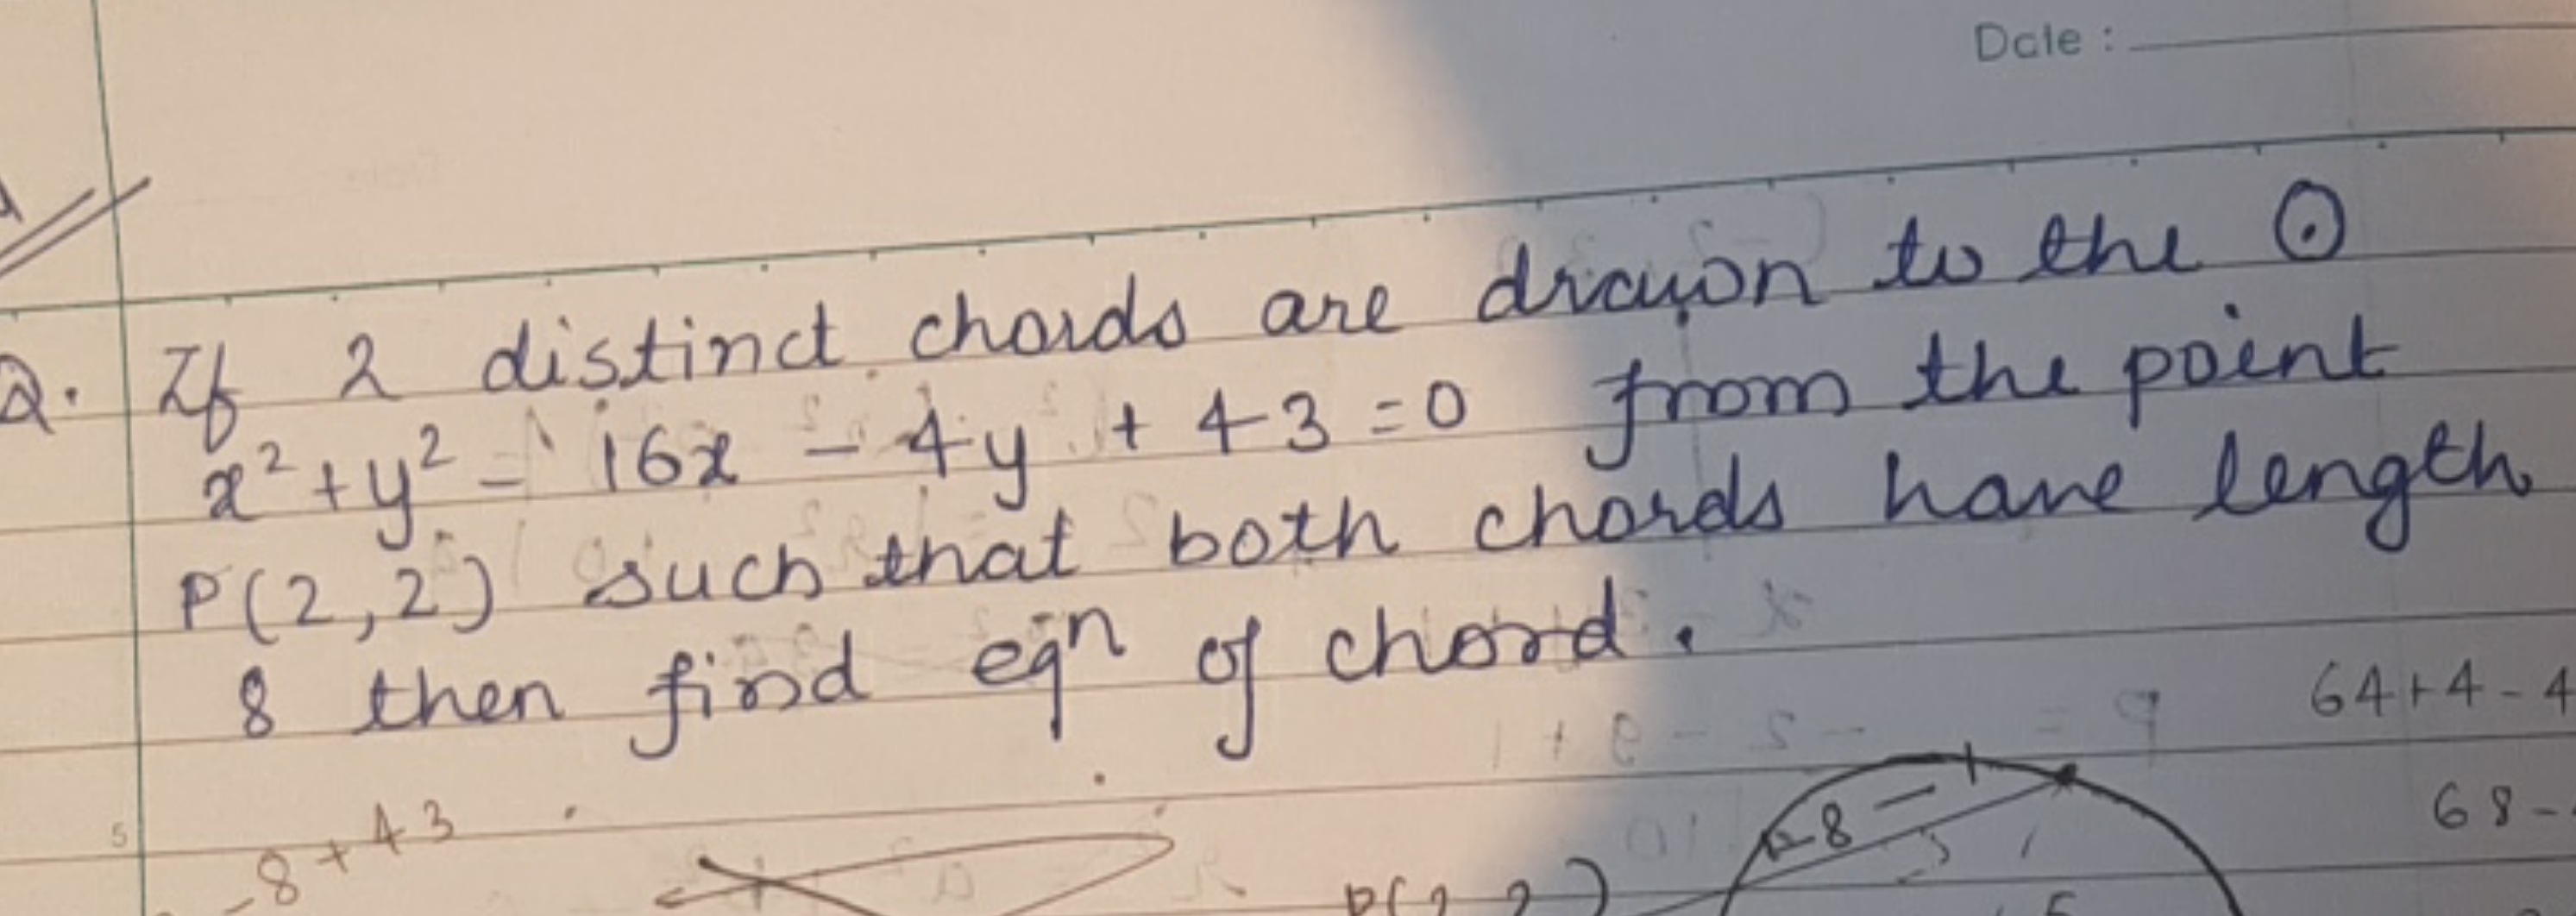 Date :
Q. If 2 distinct chords are drawn to the ⊙
x² + y² - 16x - 4y + 43 = 0 from the point
P(2,2) such that both chords have length
8 then find eqⁿ of chord.
64+4-4
5
-8+43
8
68-
P(2,2)
5